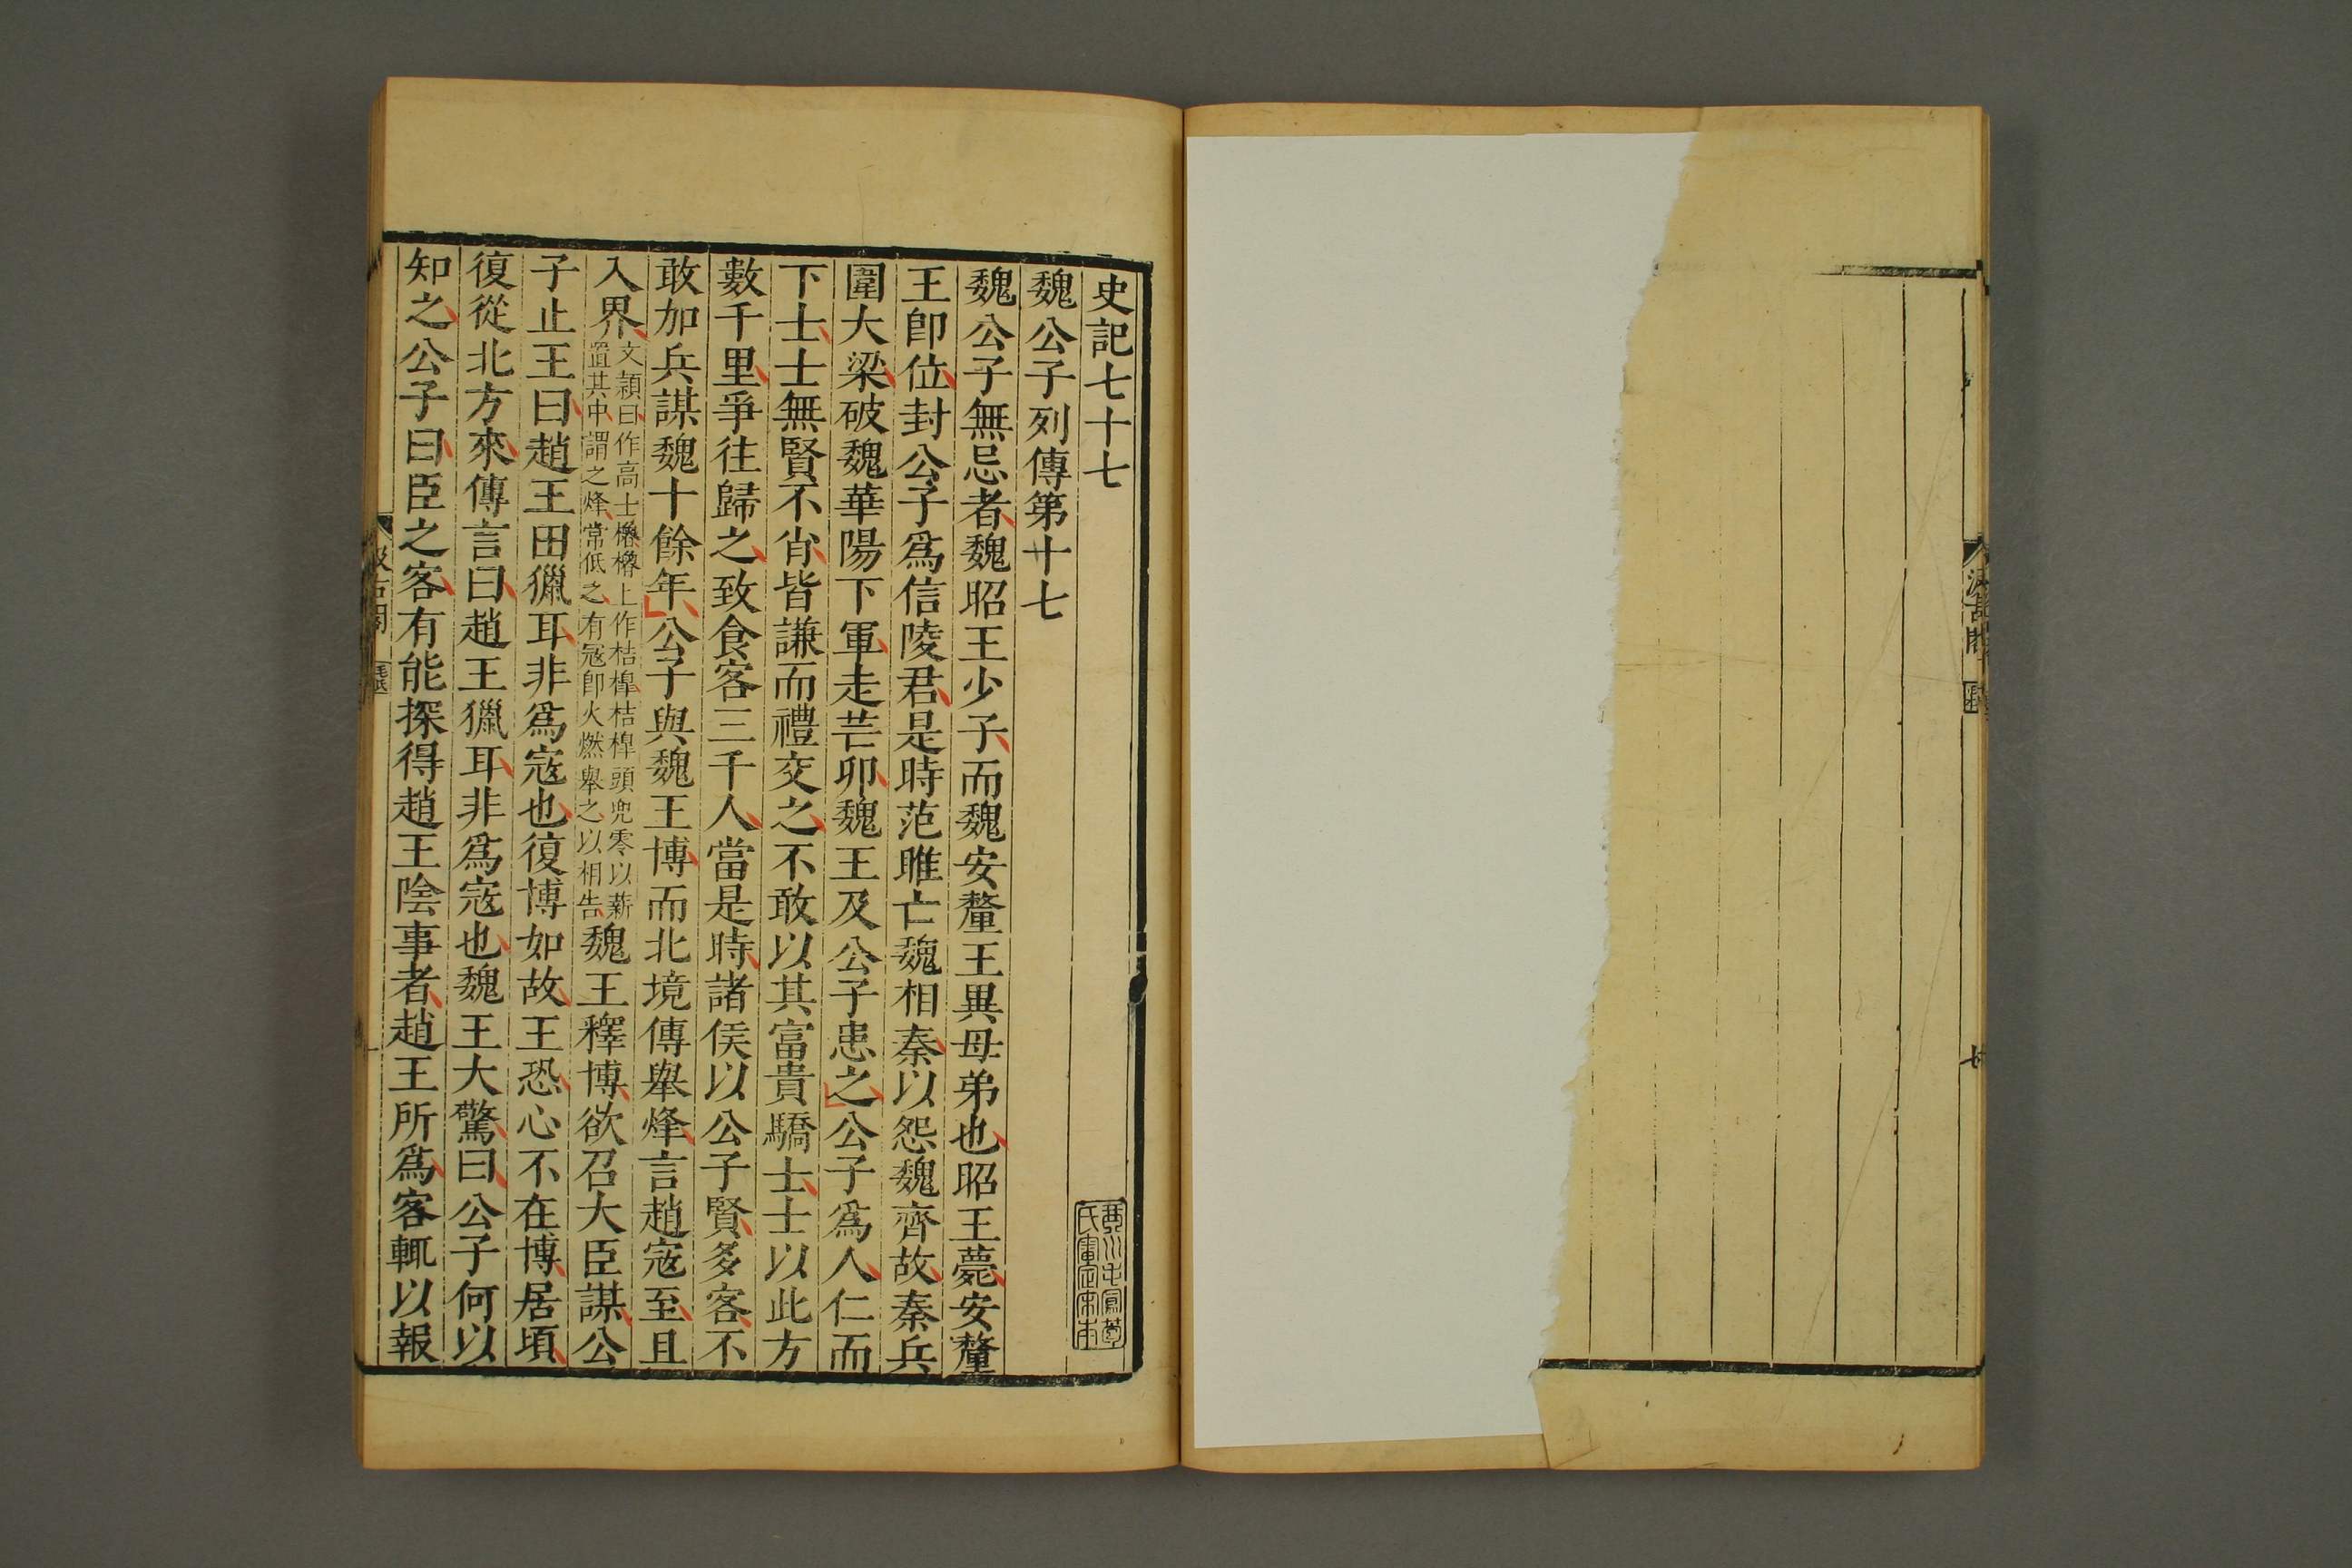 史記七十七
魏公子列傳第十七
魏公子無忌者魏昭王少子而魏安釐王異母弟也昭王薨安釐
王卽位封公子爲信陵君是時范雎亡魏相秦以怨魏齊故秦兵
圍大梁破魏華陽下軍走芒卯魏王及公子患之公子爲人仁而
下士士無賢不肖皆謙而禮交之不敢以其富貴驕士士以此方
數千里爭往歸之致食客三千人當是時諸侯以公子賢多客不
敢加兵謀魏十餘年公子與魏王博而北境傳舉烽言趙寇至且
入界
文穎曰作高士櫓櫓上作桔槔桔槔頭兜零以薪
置其中謂之烽常低之有寇卽火燃舉之以相告
魏王釋博欲召大臣謀公
子止王曰趙王田獵耳非爲寇也復博如故王恐心不在博居頃
復從北方來傳言曰趙王獵耳非爲寇也魏王大驚曰公子何以
知之公子曰臣之客有能探得趙王陰事者趙王所爲客輒以報
汲古閣